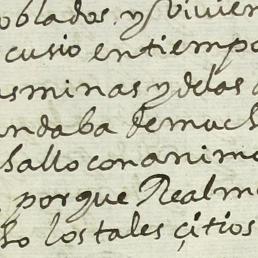 oblados, y Vivien
cusio en tiempo
as minas y de las
andaba de much
hallo con anim
porque Realm
ho los tales çitios